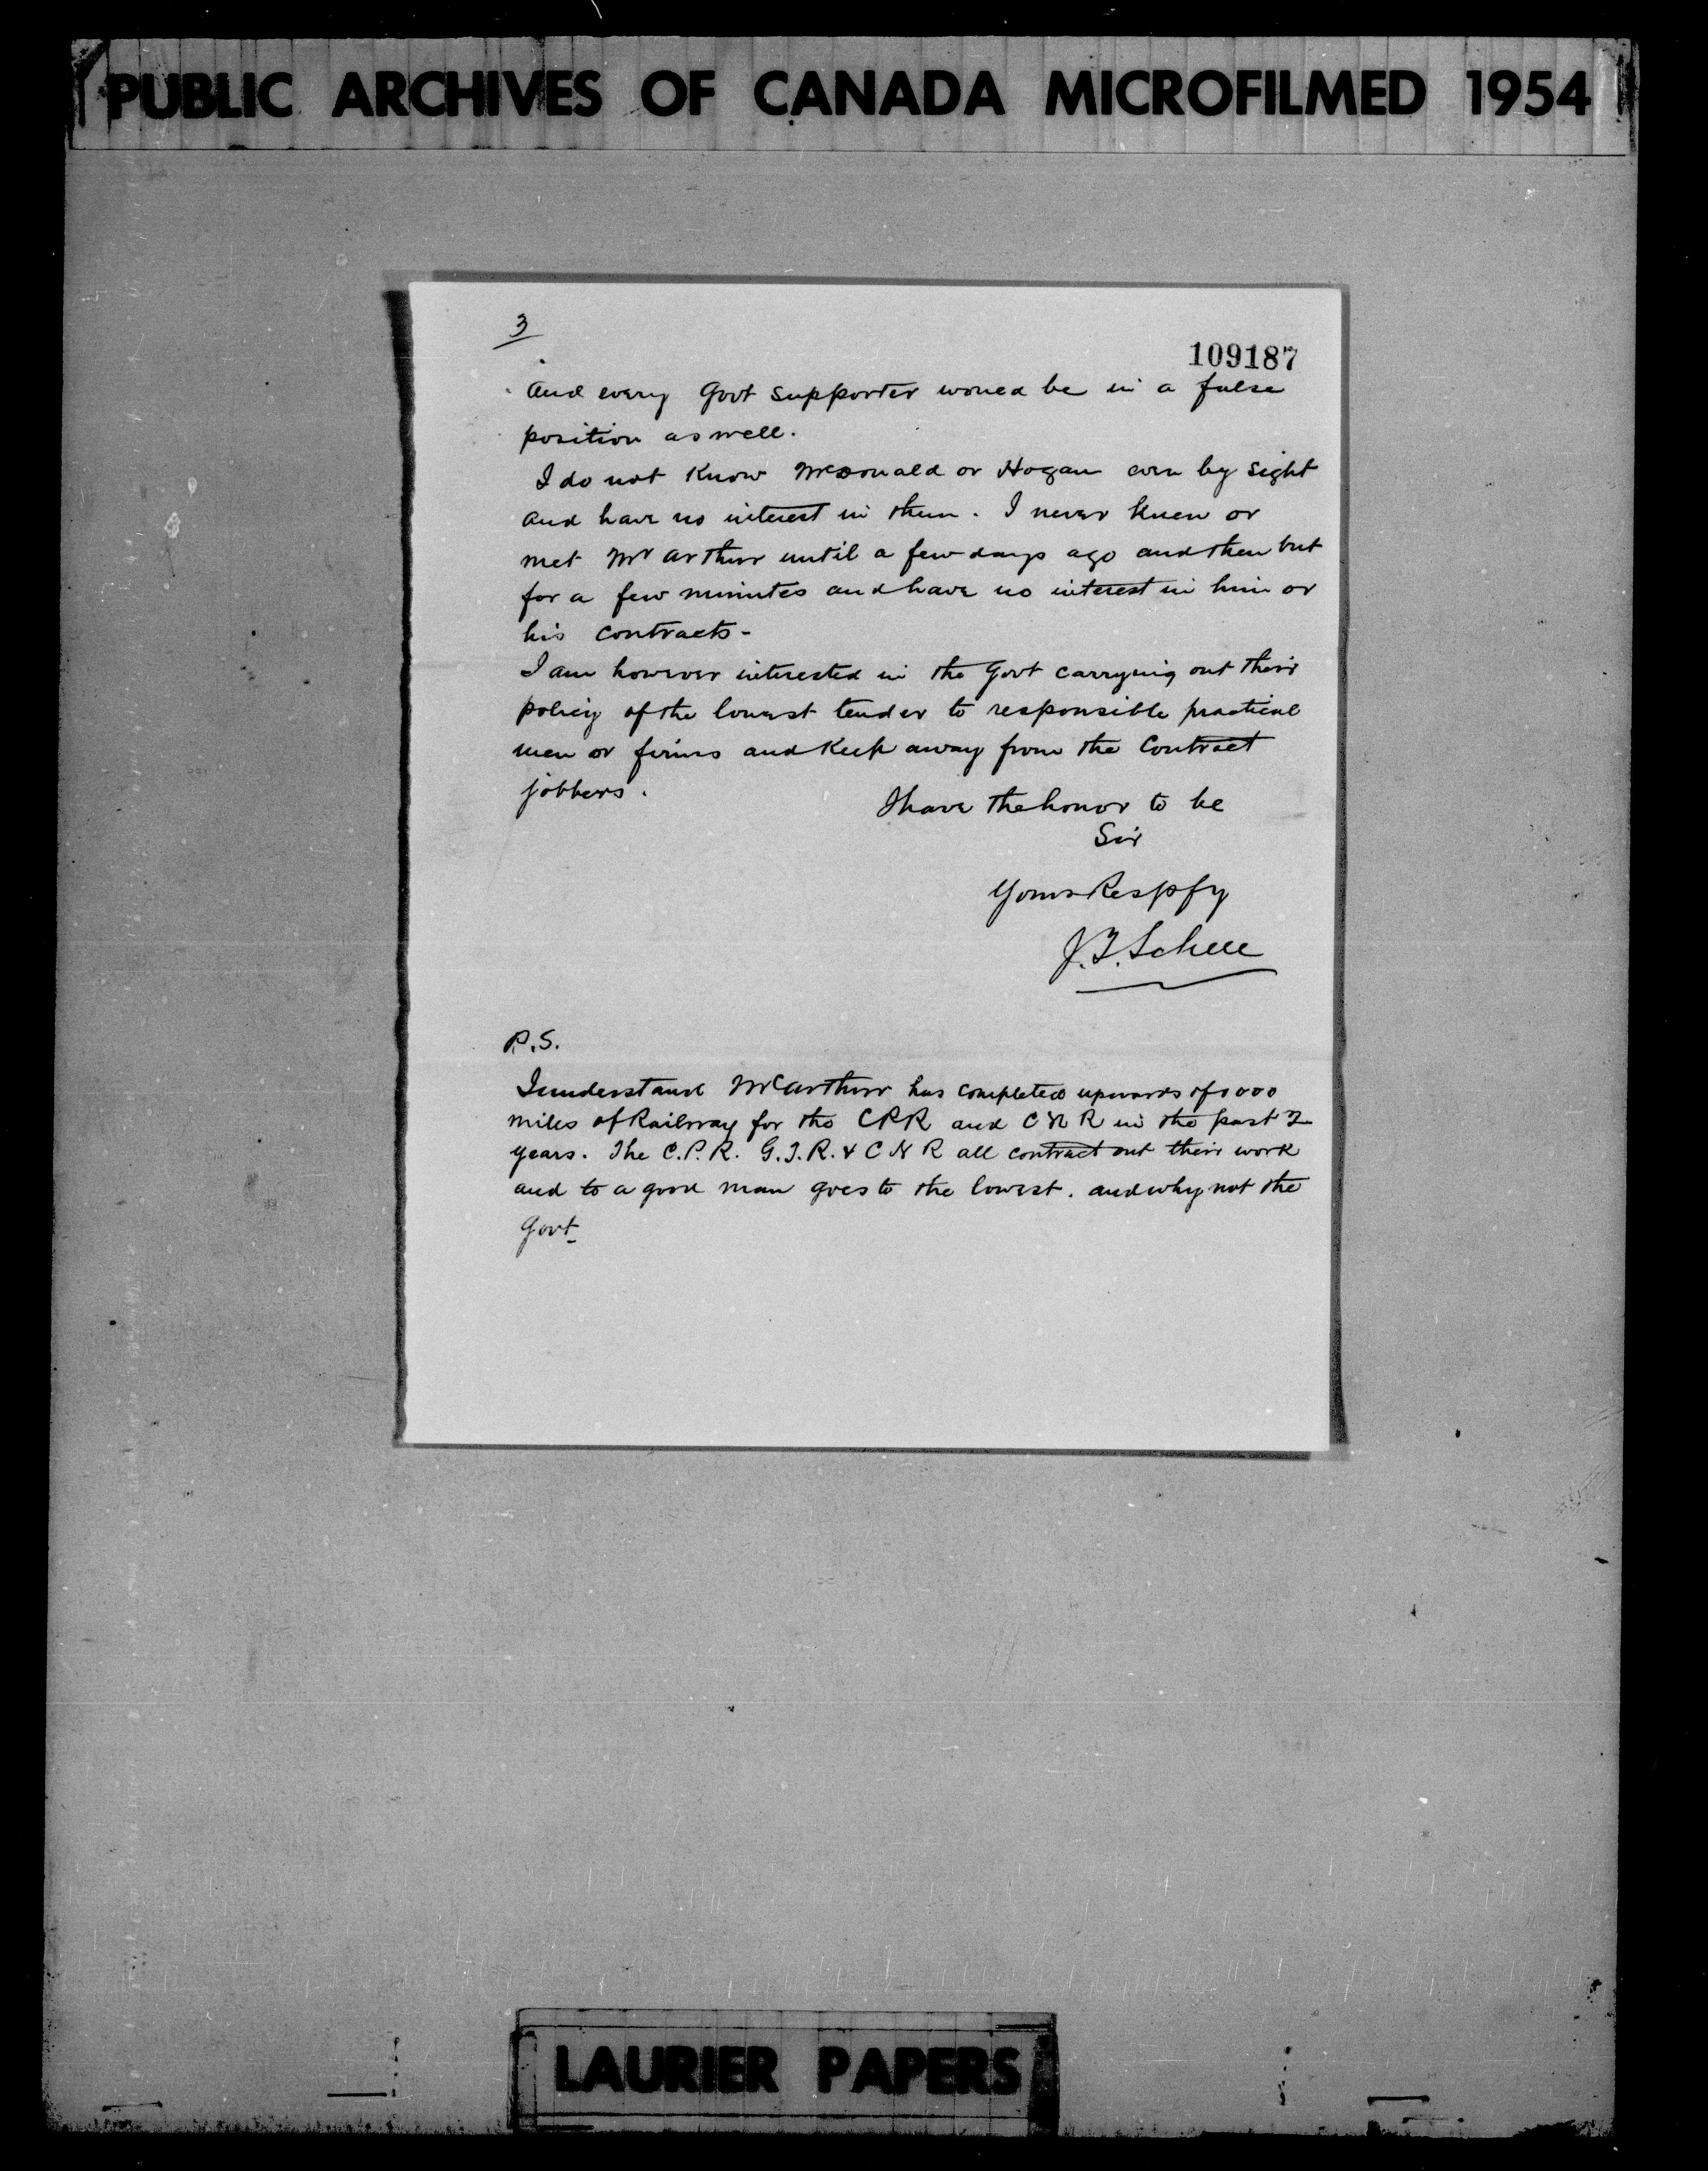 PUBLIC ARCHIVES OF CANADA MICROFILMED 1954
3
109187
and every Govt supporter would be in a false
position as well.
I do not Know McDonald or Hogan even by sight
and have no interest in them. I never knew or
met Mr Arthur until a few days ago and then but
for a few minutes and have no interest in him or
his contracts-
I am however interested in the Govt carrying out their
policy of the lowest tender to responsible practical
men or firms and Keep away from the Contract
jobbers.
I have the honor to be
Sir
Yours Respfy
J.T. Schell
P.S.
I understand McArthur has completed upwards of 1000
miles of Railway for the CPR and C N R in the past 2
years. The C.P.R. G.T.R. & C N R all contract out their work
and to a good man goes to the lowest. and why not the
Govt.
LAURIER PAPERS